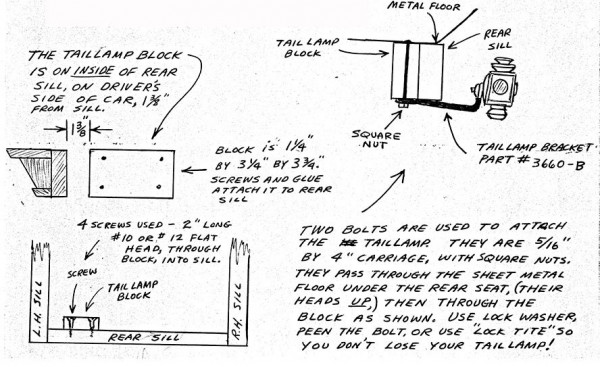 THE TAILLAMP BLOCK
IS ON INSIDE OF REAR
SILL, ON DRIVER'S
SIDE OF CAR, 1 3/8"
FROM SILL.
1 3/8"
BLOCK IS 1 1/4"
BY 3 1/4" BY 3 3/4".
SCREWS AND GLUE
ATTACH IT TO REAR
SILL
4 SCREWS USED - 2" LONG
#10 OR #12 FLAT
HEAD, THROUGH
BLOCK, INTO SILL.
SCREW
TAILLAMP
BLOCK
L.H. SILL
REAR SILL
R.H. SILL
METAL FLOOR
TAILLAMP
BLOCK
REAR
SILL
SQUARE
NUT
TAILLAMP BRACKET
PART # 3660-B
TWO BOLTS ARE USED TO ATTACH
THE TAILLAMP. THEY ARE 5/16"
BY 4" CARRIAGE, WITH SQUARE NUTS.
THEY PASS THROUGH THE SHEET METAL
FLOOR UNDER THE REAR SEAT, (THEIR
HEADS UP,) THEN THROUGH THE
BLOCK AS SHOWN. USE LOCK WASHER,
PEEN THE BOLT, OR USE "LOCK TITE" SO
YOU DON'T LOSE YOUR TAILLAMP!